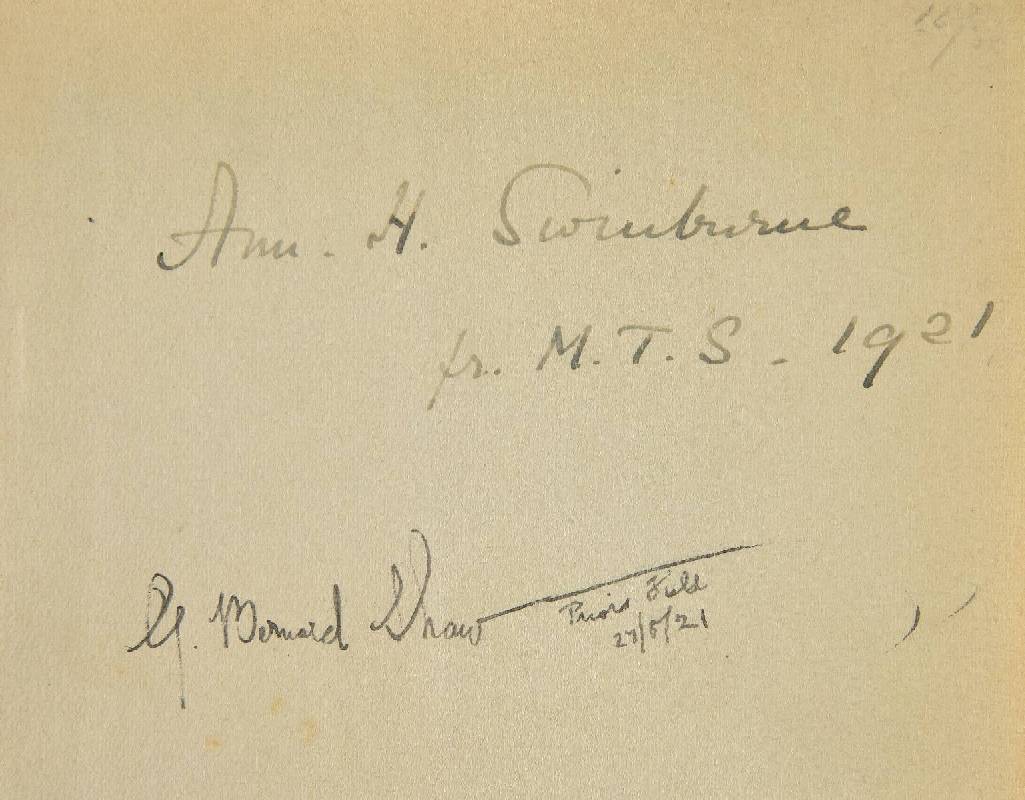 Ann. H. Swinburne
fr. M. T. S - 1921
G. Bernard Shaw
Priors Field
27/6/21